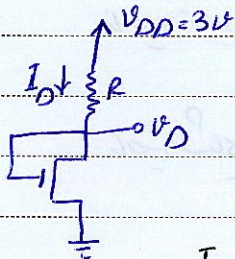 V_DD = 3V
I_D ↓
R
V_D